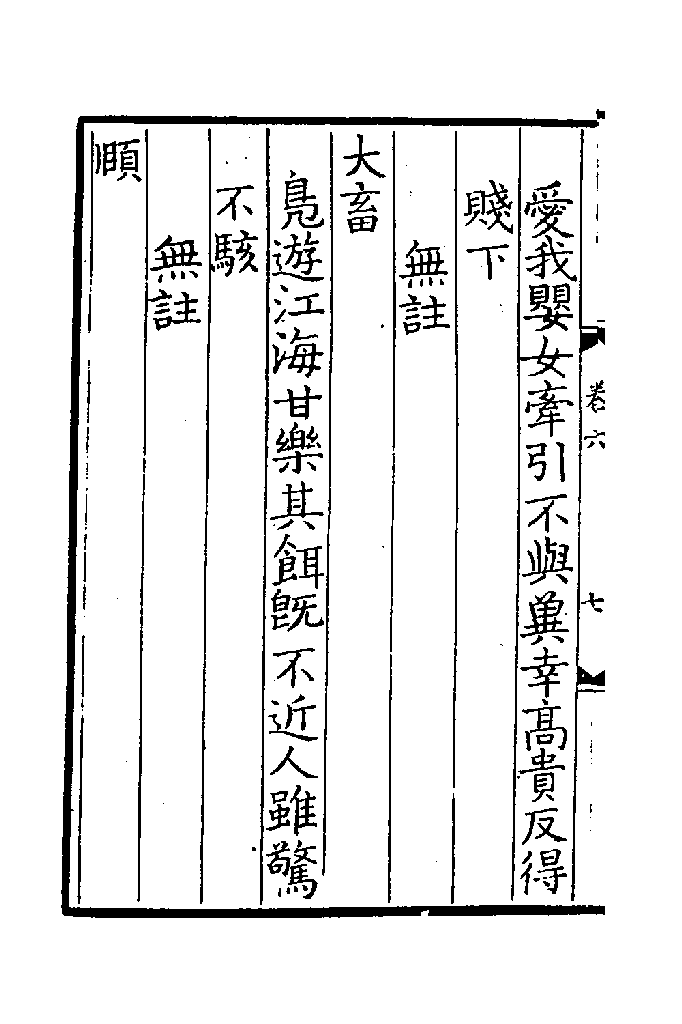 卷六
七
愛我嬰女牽引不與冀幸高貴反得
賤下
無註
大畜
鳬遊江海甘樂其餌既不近人雖驚
不駭
無註
頤